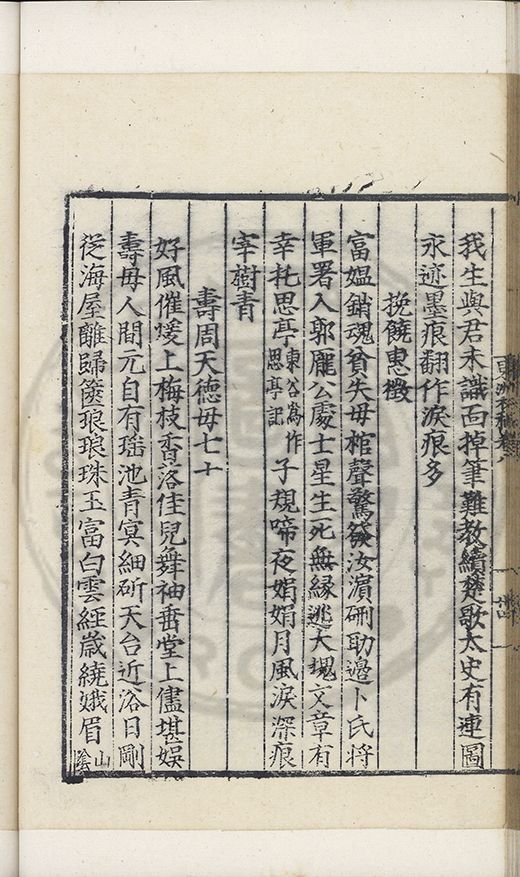 我生與君未識面掉筆難教續楚歌太史有連圖
永迹墨痕翻作淚痕多
挽饒惠徵
富媼銷魂貧失母棺聲驚發汝濵硎助邉卜氏將
軍署入郭龐公處士星生死無縁逃大塊文章有
幸托思亭東谷為作思亭記子規啼夜娟娟月風淚深痕
宰樹青
壽周天德母七十
好風催燰上梅枝香落佳兒舞袖垂堂上儘堪娛
壽母人間元自有瑶池青㝠細斫天台近浴日剛
從海屋離歸篋琅琅珠玉富白雲經歳繞娥眉山隂